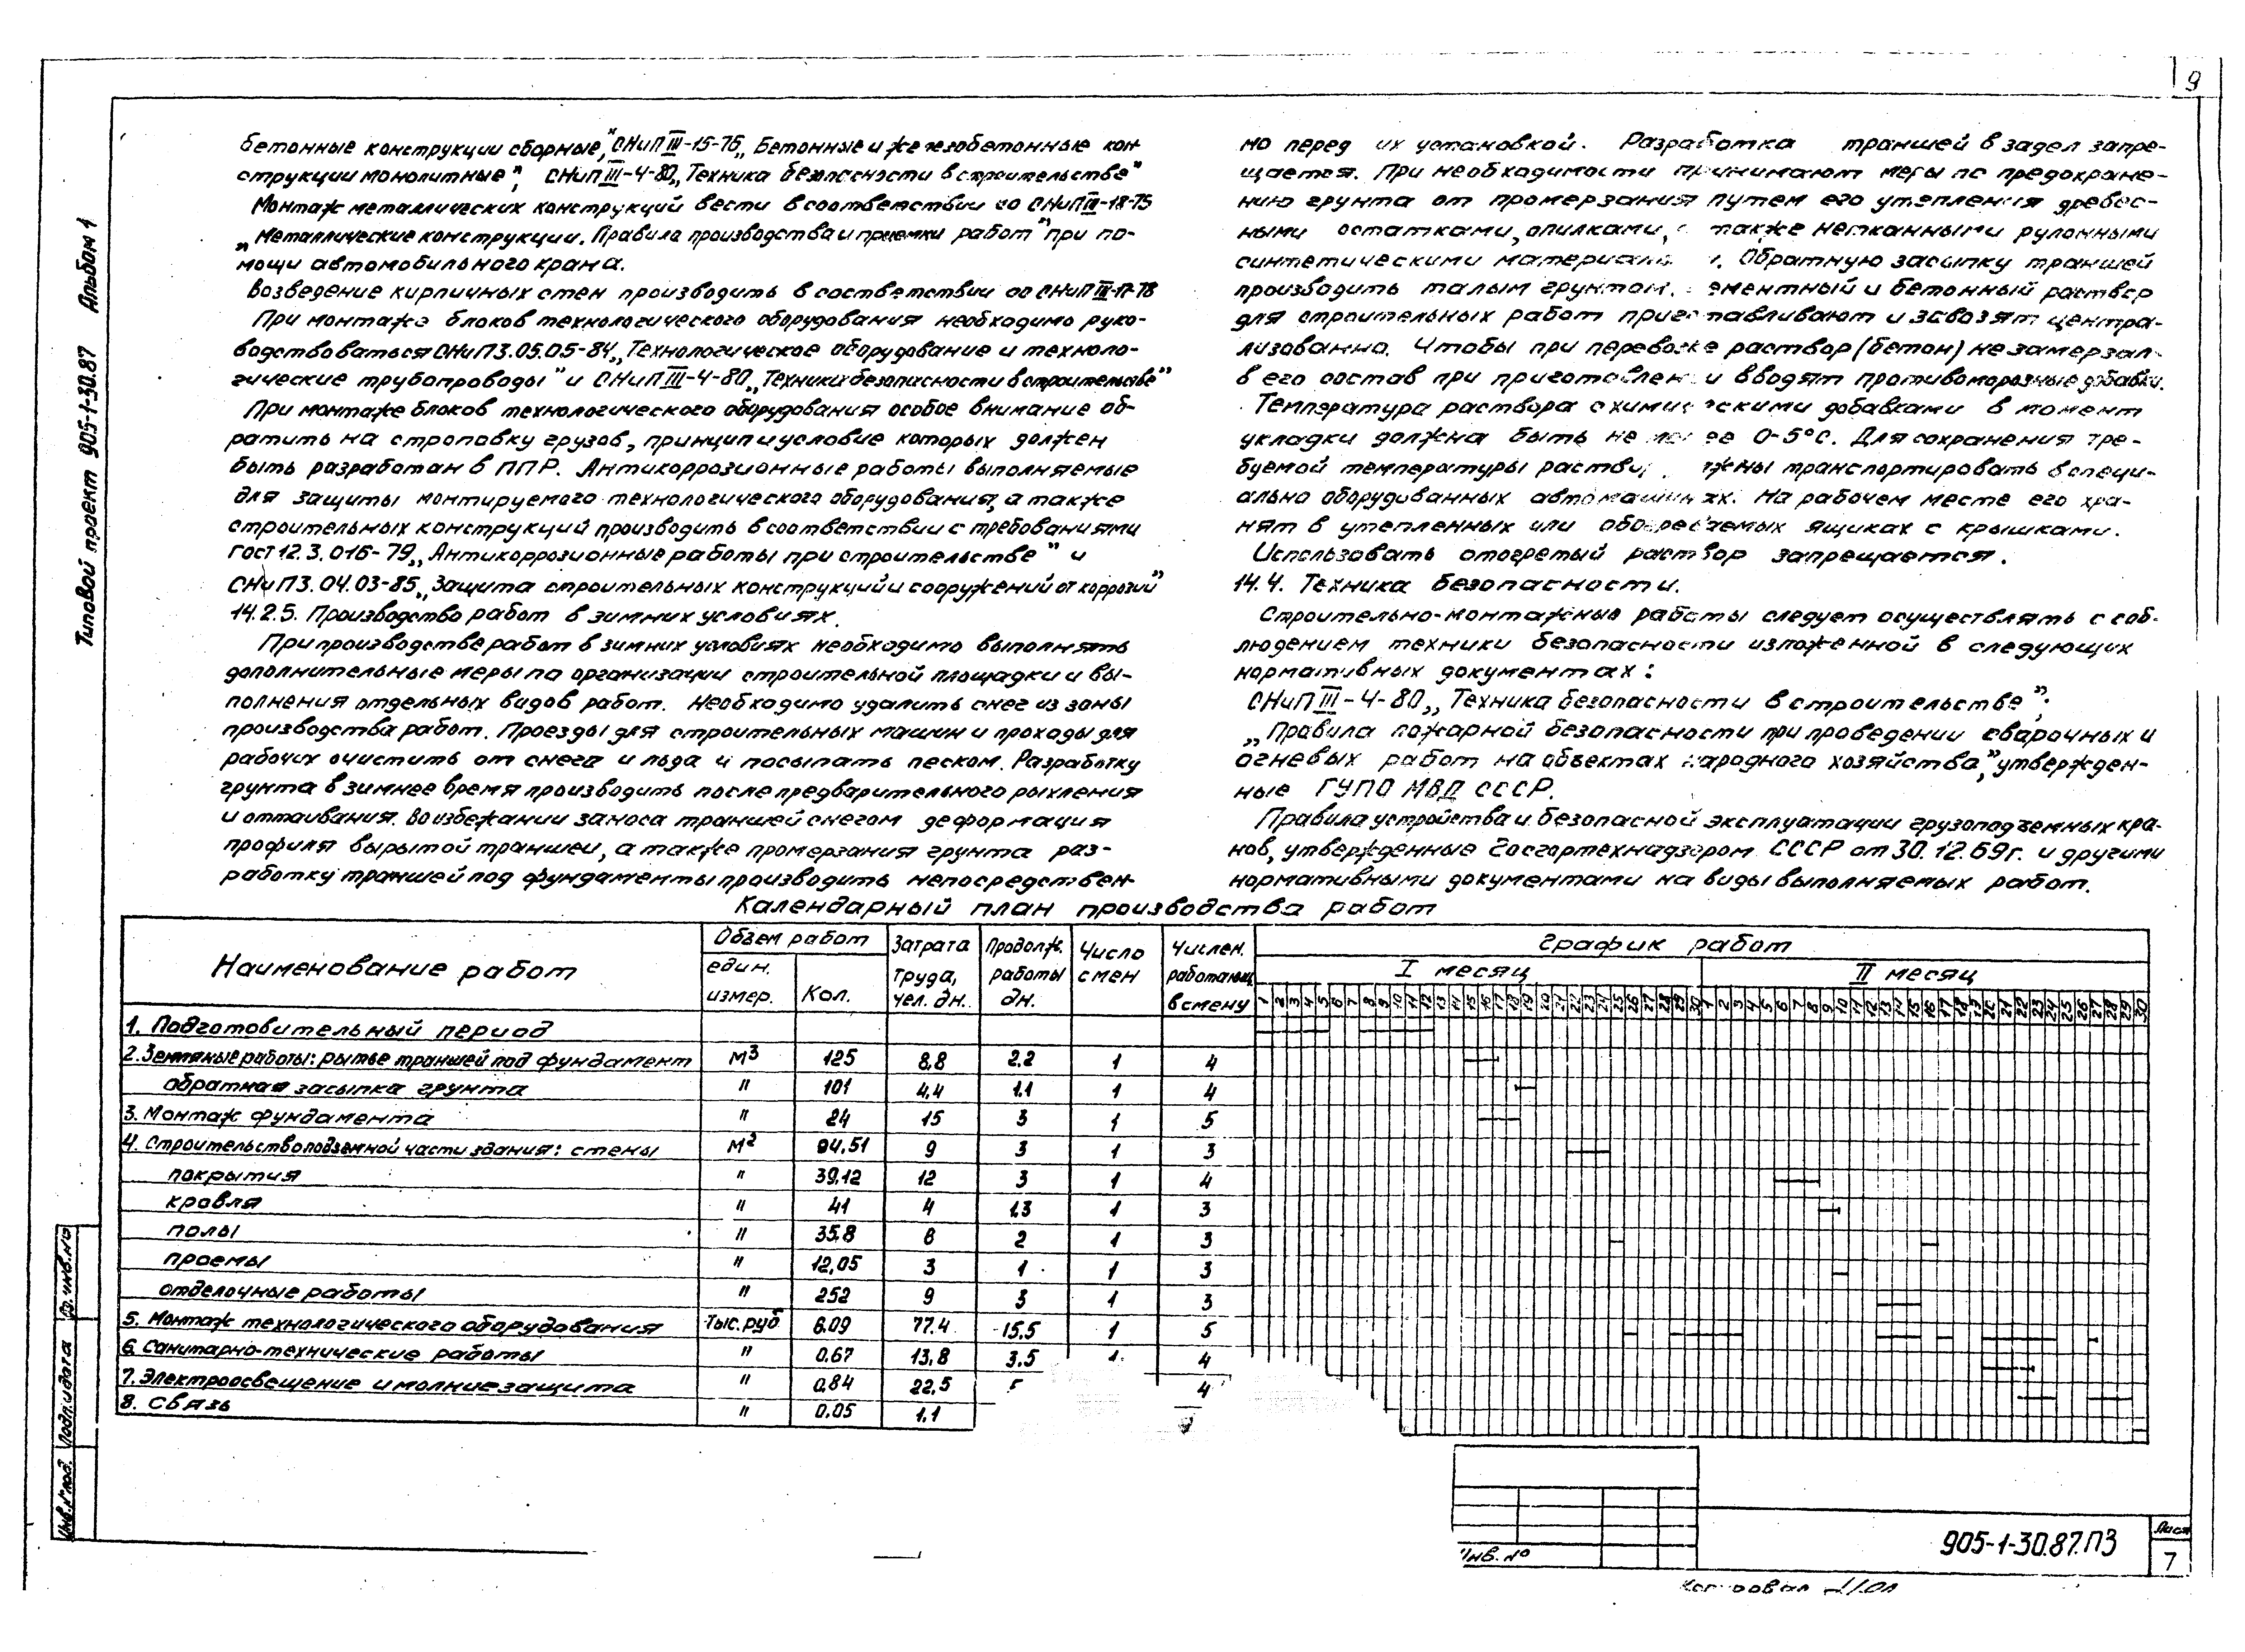 9
Типовой проект 905-1-30.87 Альбом 1
бетонные конструкции сборные", СНиП III-15-76 „Бетонные и железобетонные кон-
струкции монолитные", СНиП III-4-80 „Техника безопасности в строительстве"
Монтаж металлических конструкций вести в соответствии со СНиП III-18-75
„Металлические конструкции. Правила производства и приемки работ" при по-
мощи автомобильного крана.
Возведение кирпичных стен производить в соответствии со СНиП III-17-78
При монтаже блоков технологического оборудования необходимо руко-
водствоваться СНиП 3.05.05-84 „Технологическое оборудование и техноло-
гические трубопроводы" и СНиП III-4-80 „Техники безопасности в строительстве"
При монтаже блоков технологического оборудования особое внимание об-
ратить на строповку грузов, принцип и условие которых должен
быть разработан в ППР. Антикоррозионные работы выполняемые
для защиты монтируемого технологического оборудования, а также
строительных конструкций производить в соответствии с требованиями
ГОСТ 12.3.016-79 „Антикоррозионные работы при строительстве" и
СНиП 3.04.03-85 „Защита строительных конструкций и сооружений от коррозий"
14.2.5. Производство работ в зимних условиях.
При производстве работ в зимних условиях необходимо выполнять
дополнительные меры по организации строительной площадки и вы-
полнения отдельных видов работ. Необходимо удалить снег из зоны
производства работ. Проезды для строительных машин и проходы для
рабочих очистить от снега и льда и посыпать песком. Разработку
грунта в зимнее время производить после предварительного рыхления
и оттаивания. Во избежании заноса траншей снегом деформация
профиля вырытой траншеи, а также промерзания грунта раз-
работку траншей под фундаменты производить непосредствен-
но перед их установкой. Разработка траншей в задел запре-
щается. При необходимости принимают меры по предохране-
нию грунта от промерзания путем его утепления древес-
ными остатками, опилками, также неткаными рулонными
синтетическими Обратную засыпку траншей
производить талым грунтом. и бетонный раствор
для строительных работ приготавливают и завозят центра-
лизованно. Чтобы при перевозке раствор (бетон) не замерзал
в его состав при приготовлении вводят противоморозные добавки.
Температура раствора с химическими добавками в момент
укладки должна быть не 0-5°С. Для сохранения тре-
буемой температуры транспортировать в специ-
ально оборудованных автомашинах. На рабочем месте его хра-
нят в утепленных или обогреваемых ящиках с крышками.
Использовать отогретый раствор запрещается.
14.4. Техника безопасности.
Строительно-монтажные работы следует осуществлять с соб-
людением техники безопасности изложенной в следующих
нормативных документах:
СНиП III-4-80 „Техника безопасности в строительстве";
„Правила пожарной безопасности при проведении сварочных и
огневых работ на объектах народного хозяйства", утвержден-
ные ГУПО МВД СССР.
Правила устройства и безопасной эксплуатации грузоподъемных кра-
нов, утвержденные Госгортехнадзором СССР от 30.12.69г. и другими
нормативными документами на виды выполняемых работ.
Календарный план производства работ
Наименование работ Объем работ един. измер. Кол. Затрата труда, чел. дн. Продолж. работы дн. Число смен Числен. работающ. в смену График работ
I месяц II месяц
1 2 3 4 5 6 7 8 9 10 11 12 13 14 15 16 17 18 19 20 21 22 23 24 25 26 27 28 29 30 1 2 3 4 5 6 7 8 9 10 11 12 13 14 15 16 17 18 19 20 21 22 23 24 25 26 27 28 29 30
1. Подготовительный период
2. Земляные работы: рытье траншей под фундамент м³ 125 8,8 2.2 1 4
обратная засыпка грунта " 101 4,4 1.1 1 4
3. Монтаж фундамента " 24 15 3 1 5
4. Строительство подземной части здания: стены м² 94,51 9 3 1 3
покрытия " 39,12 12 3 1 4
кровля " 41 4 1.3 1 3
полы " 35,8 6 2 1 3
проемы " 12,05 3 1 1 3
отделочные работы " 252 9 3 1 3
5. Монтаж технологического оборудования тыс. руб 6.09 77.4 15.5 1 5
6. Санитарно-технические работы " 0.67 13,8 3.5 1 4
7. Электроосвещение и молниезащита " 0,84 22,5 4
8. Связь " 0.05 1.1
Вз. инв. №
Подп. и дата
Инв. № подл.
Инв. №
905-1-30.87.ПЗ
Лист
7
Копировал